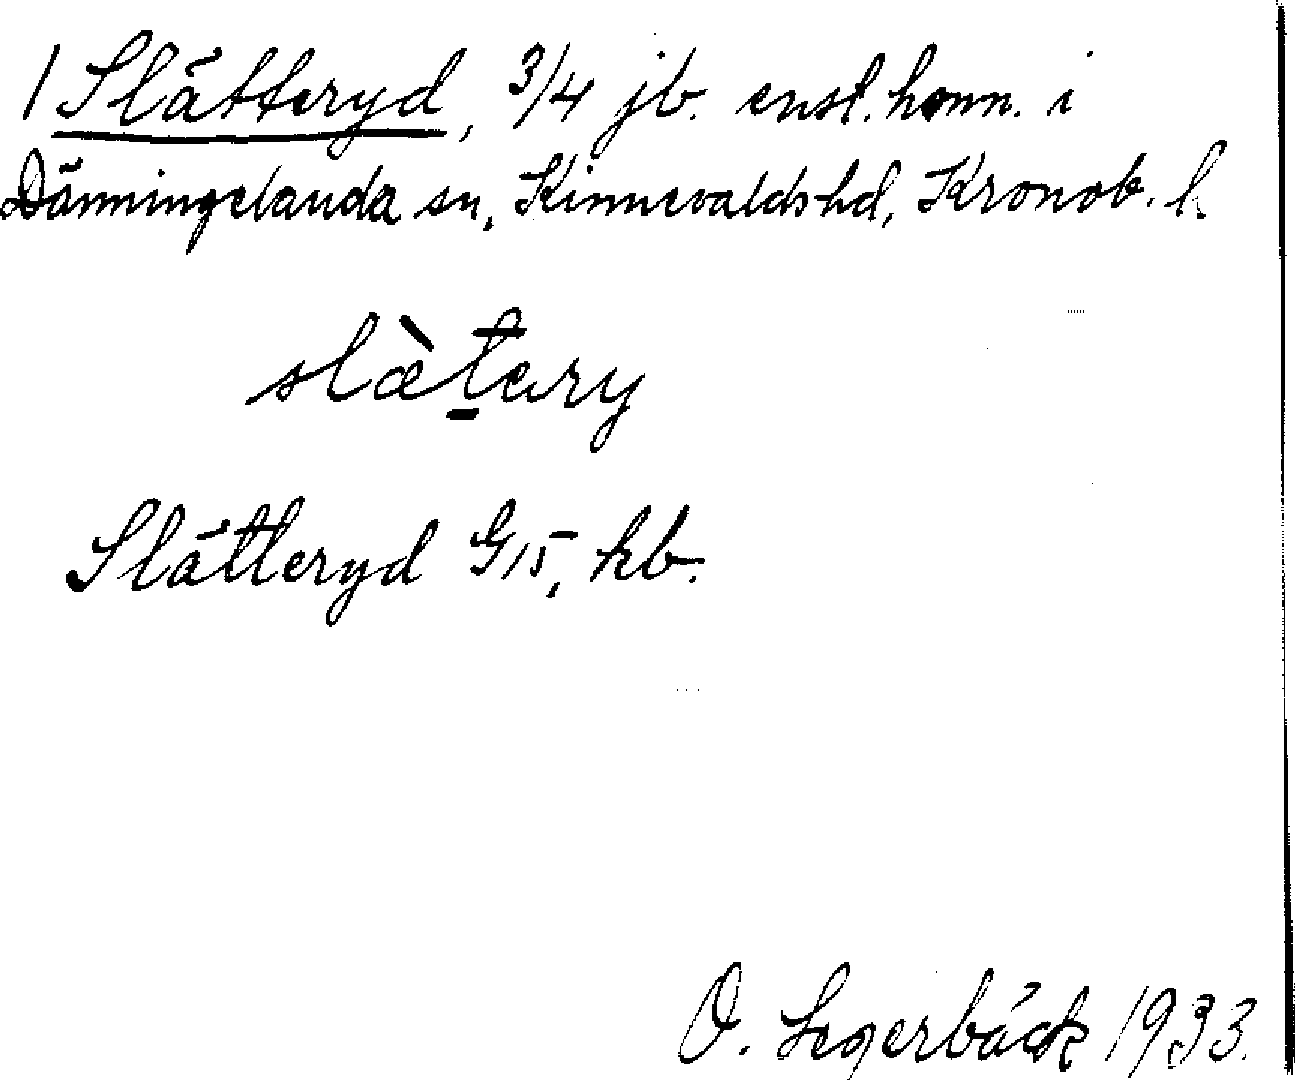 1 Slätteryd, 3/4 jb. ensl. hmn. i
Dänningelanda sn, Kinnevalds hd, Kronob. l.
slæ̀tery
Slätteryd G15, kb.
O. Segerbäck 1933.